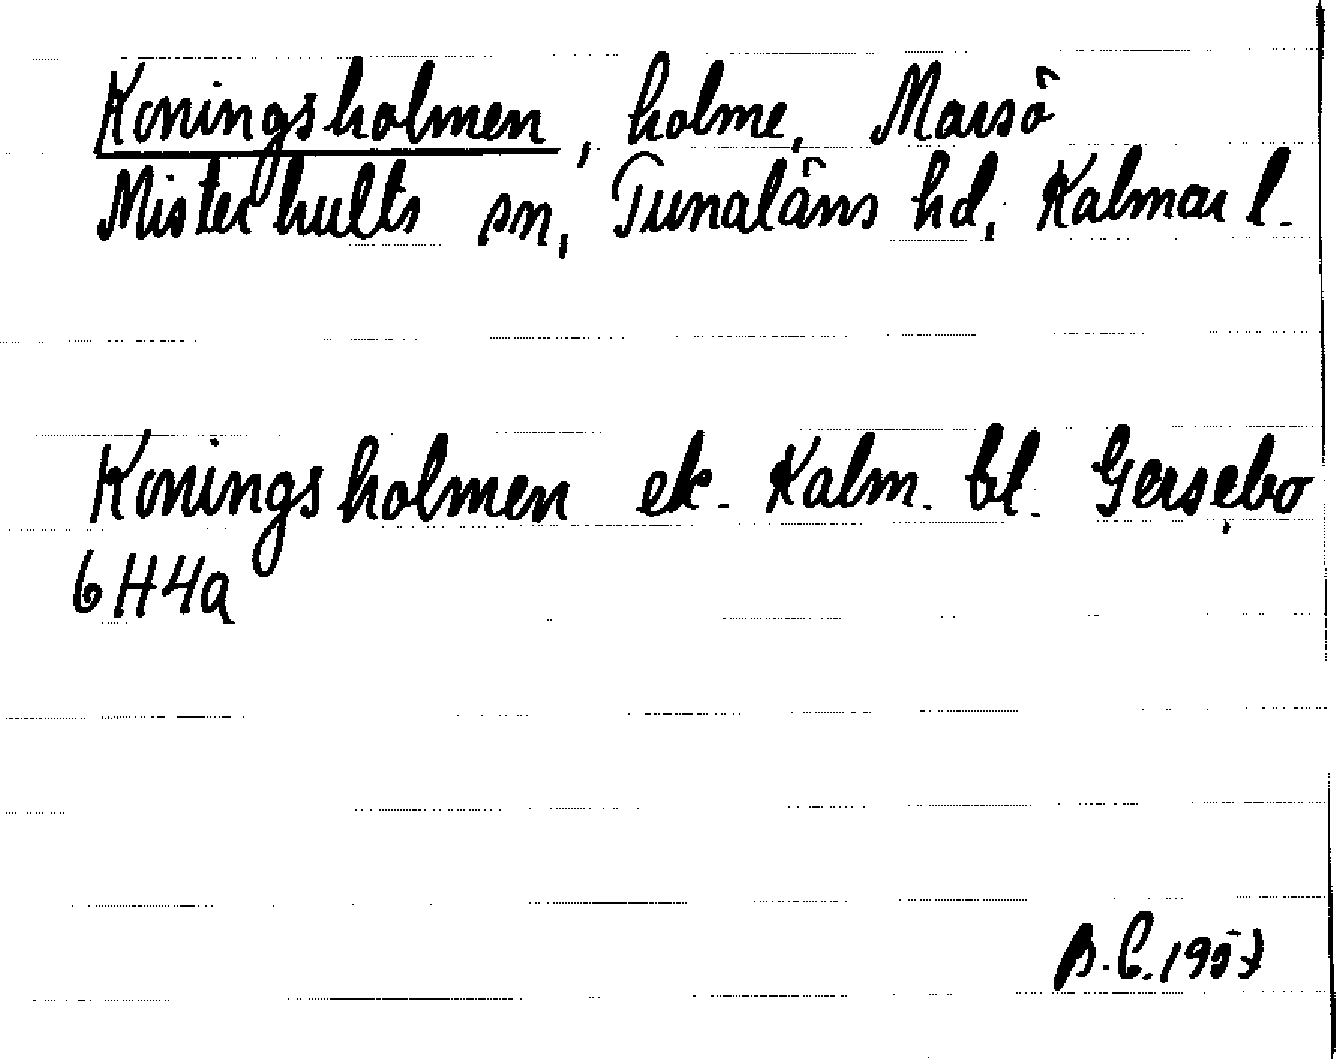 Koningsholmen, holme, Marsö
Misterhults sn, Tunaläns hd, Kalmar l.
Koningsholmen ek. Kalm. bl. Gersebo
6H4a
B.C. 1957